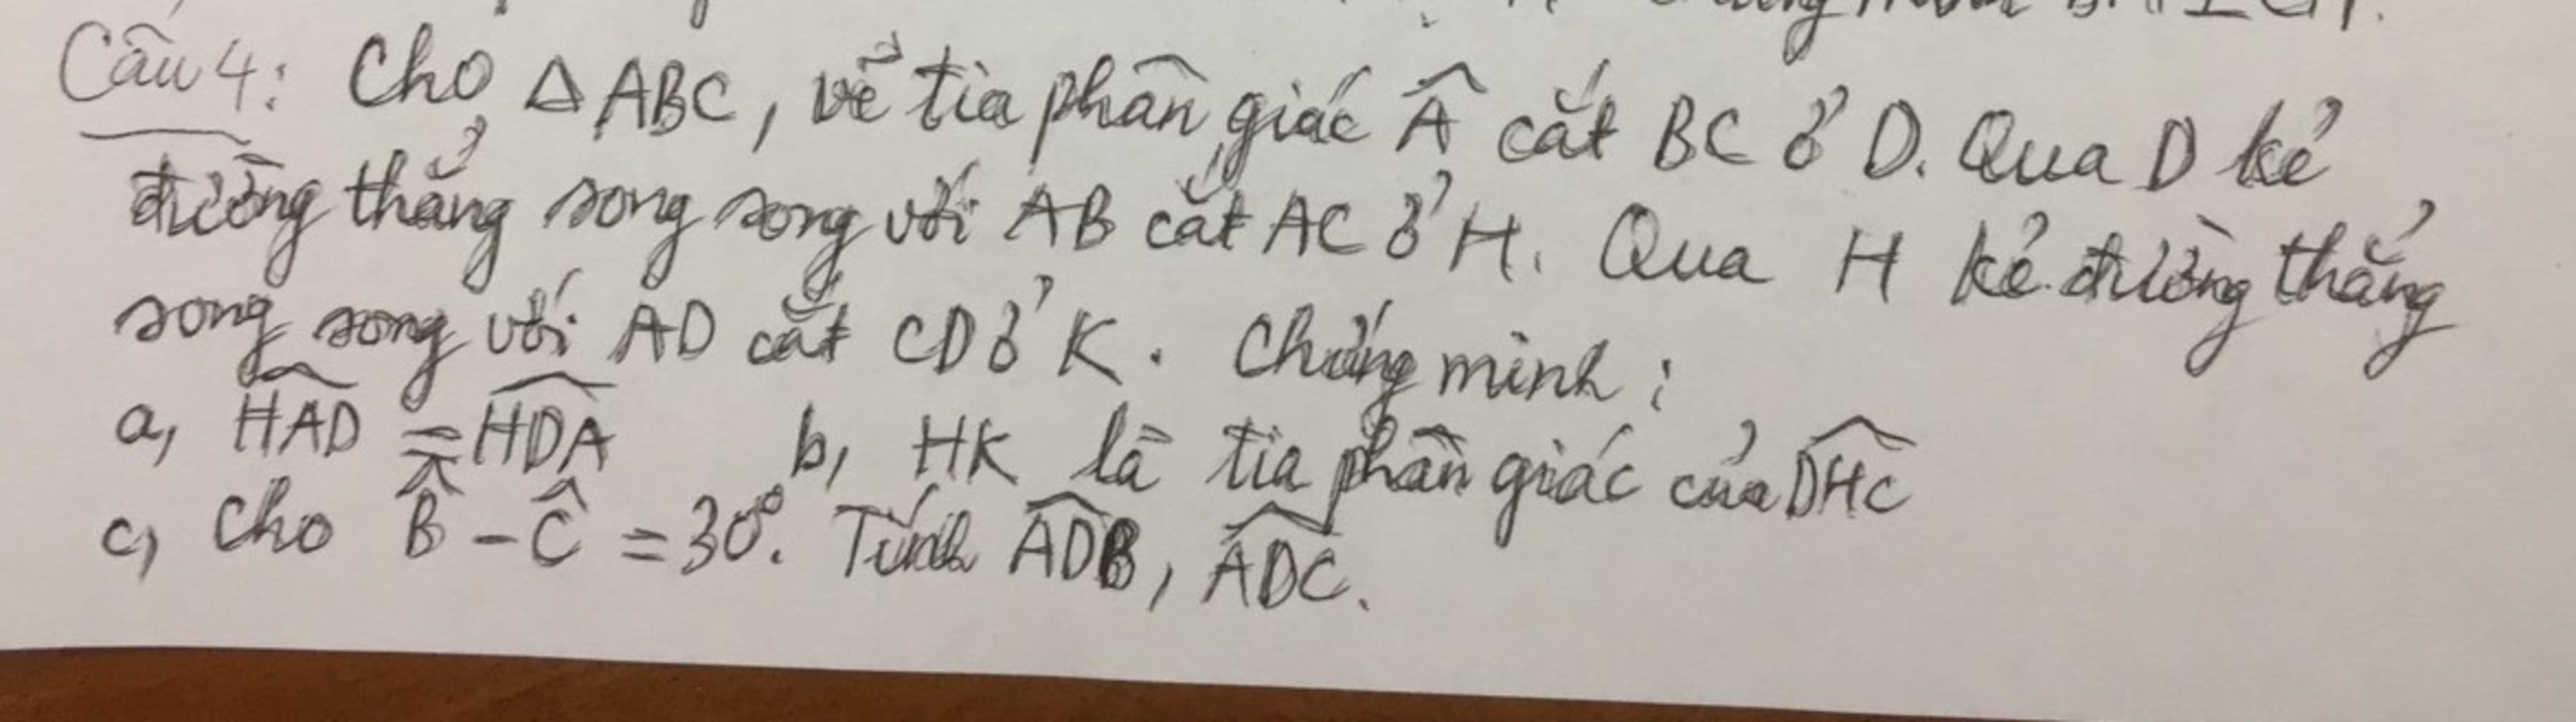 Câu 4: Cho △ABC, vẽ tia phân giác Â cắt BC ở D. Qua D kẻ
đường thẳng song song với AB cắt AC ở H. Qua H kẻ đường thẳng
song song với AD cắt CD ở K. Chứng minh:
a, HAD̂ = HDÂ b, HK là tia phân giác của DHĈ
c, Cho B̂ - Ĉ = 30°. Tính ADB̂, ADĈ.